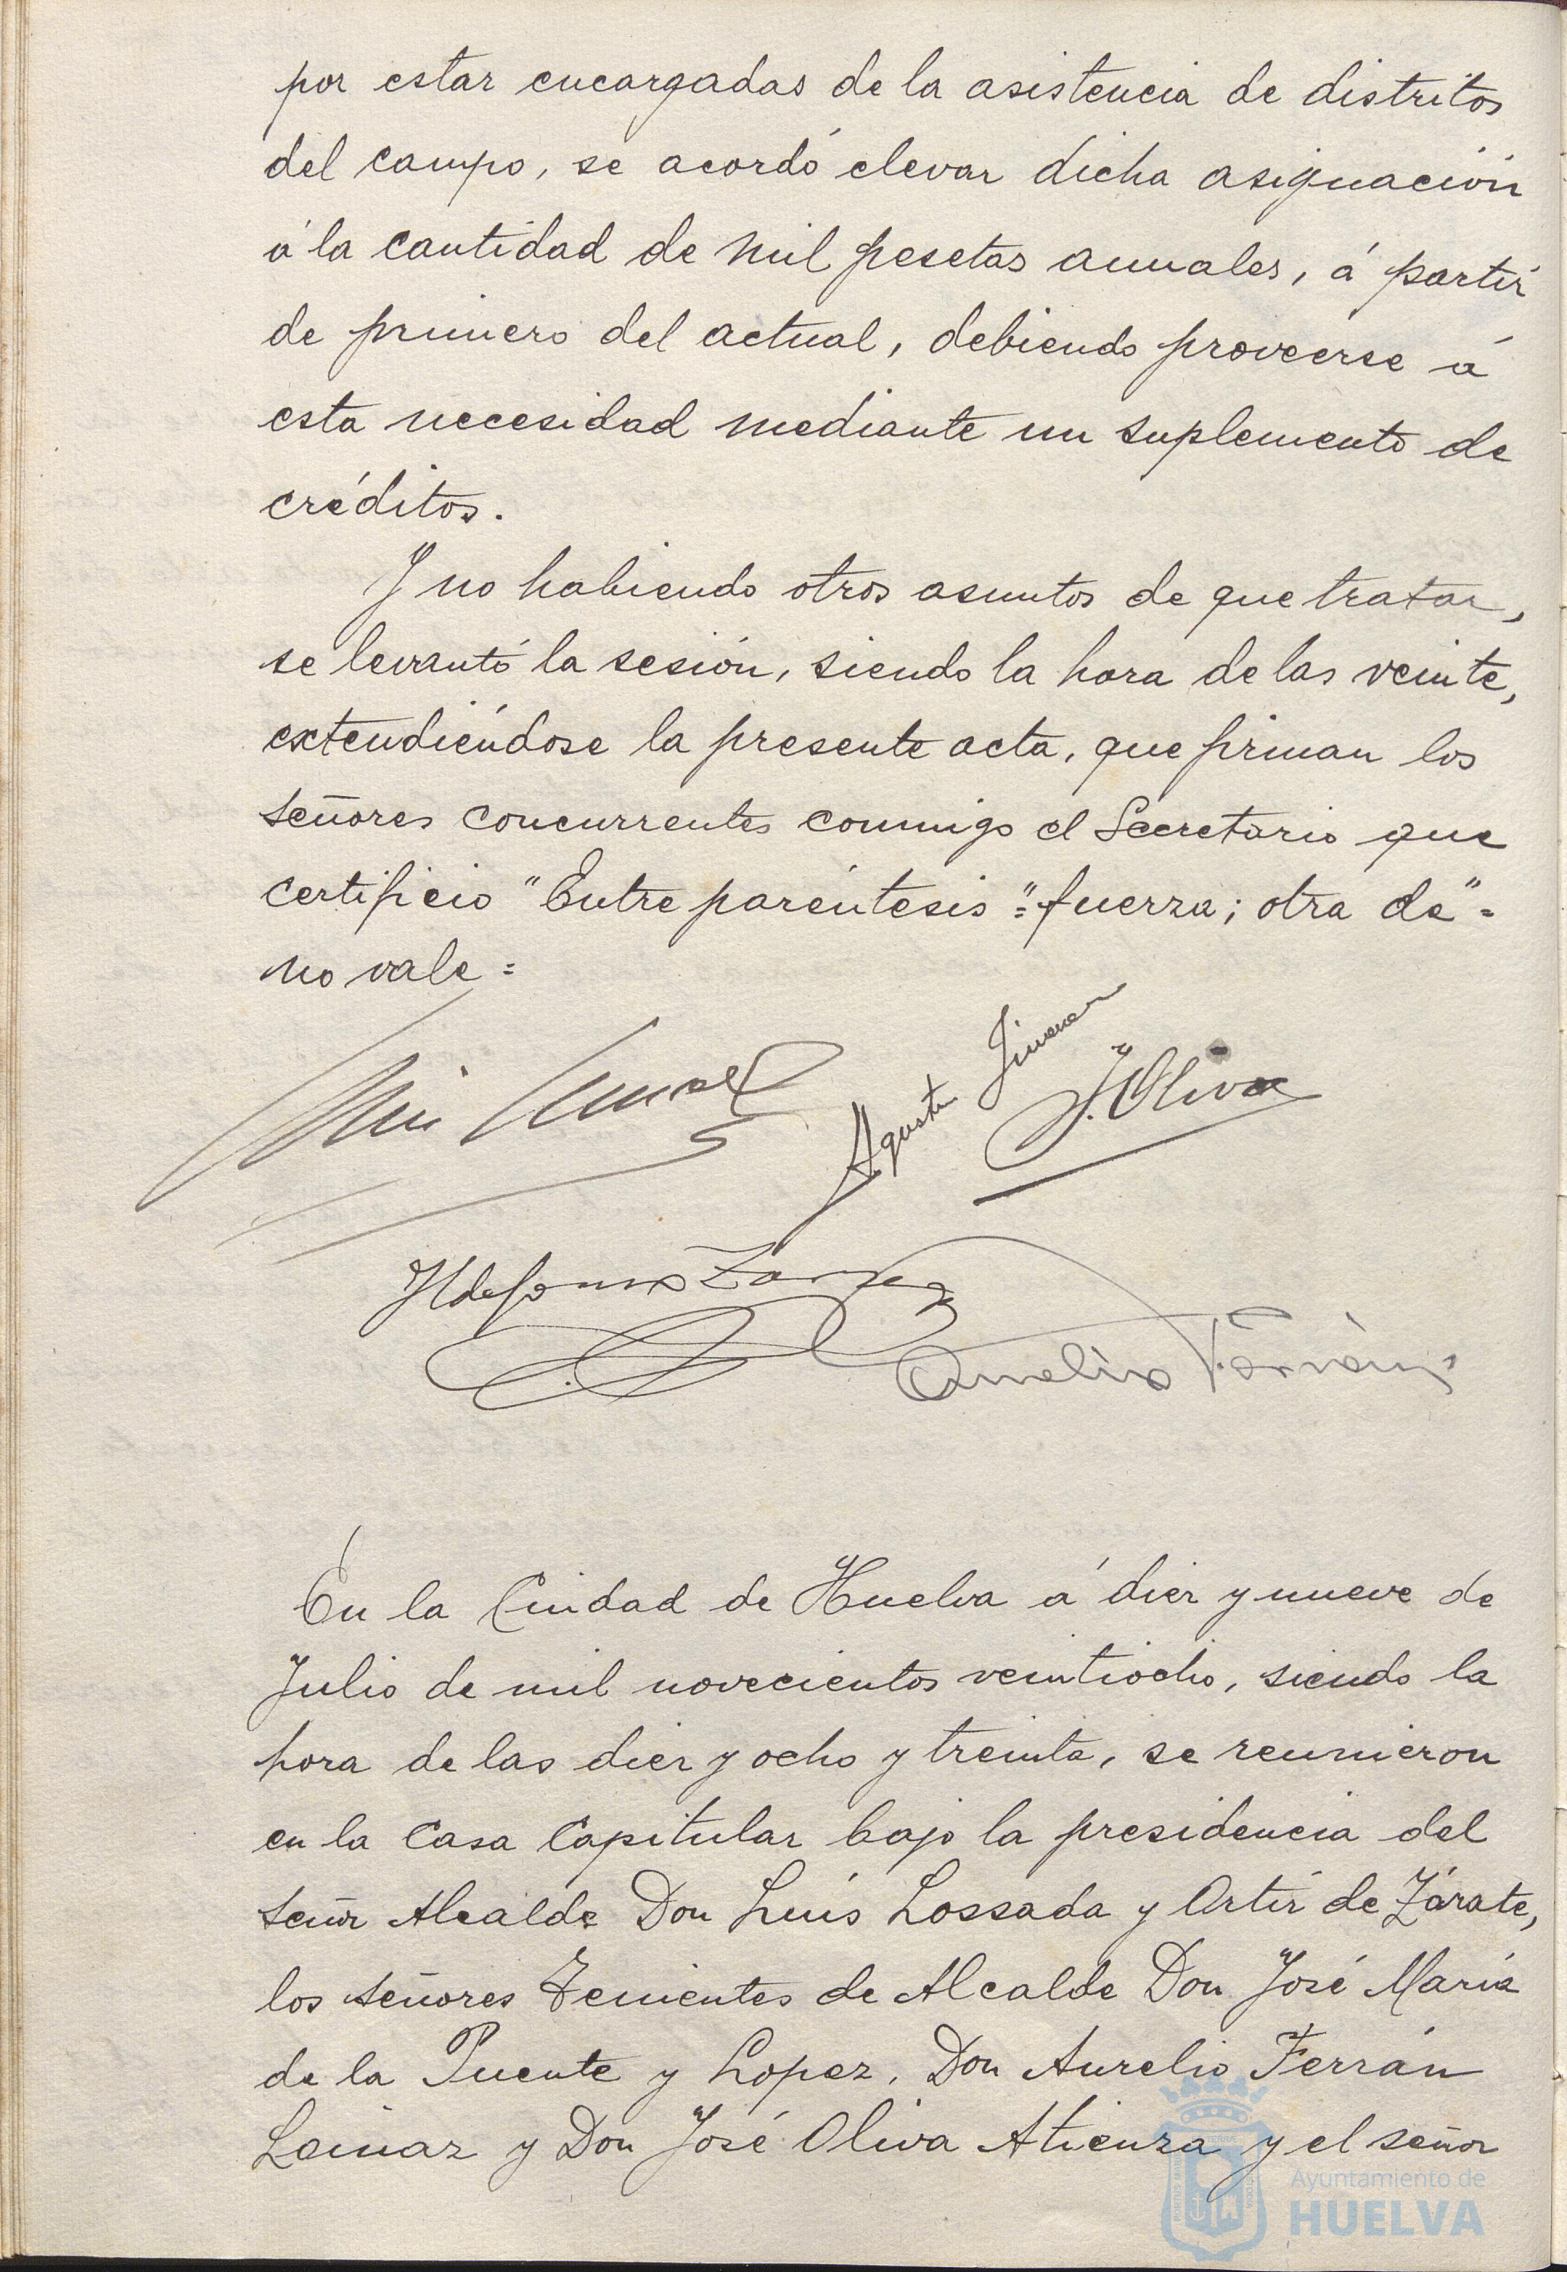 por estar encargadas de la asistencia de distritos
del campo, se acordó elevar dicha asignación
á la cantidad de mil pesetas anuales, á partir
de primero del actual, debiendo proveerse á
esta necesidad mediante un suplemento de
créditos.
Y no habiendo otros asuntos de que tratar,
se levantó la sesión, siendo la hora de las veinte,
extendiéndose la presente acta, que firman los
señores concurrentes conmigo el Secretario que
certificio "Entre paréntesis "= fuerza; otra de" =
no vale =
Agustin Jimenez
J. Oliva
Ildefonso
Aurelio Ferrán
En la Ciudad de Huelva á diez y nueve de
Julio de mil novecientos veintiocho, siendo la
hora de las diez y ocho y treinta, se reunieron
en la Casa Capitular bajo la presidencia del
señor Alcalde Don Luis Lossada y Ortiz de Zárate,
los señores Tenientes de Alcalde Don José María
de la Puente y Lopez, Don Aurelio Ferrán
Lomar y Don José Oliva Atienza y el señor
Ayuntamiento de
HUELVA